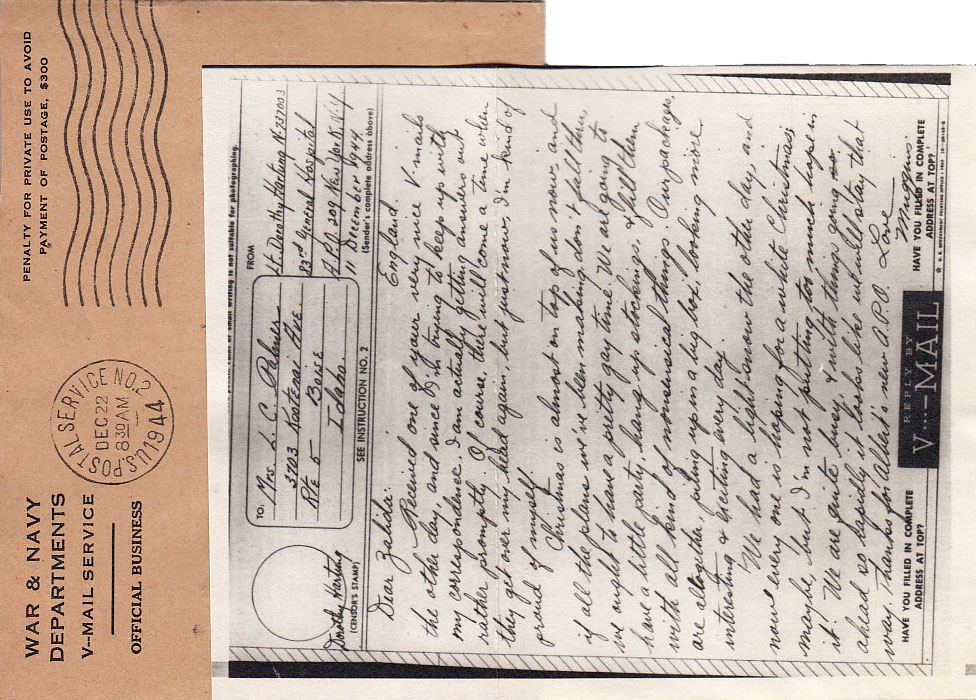 WAR & NAVY
DEPARTMENTS
V--MAIL SERVICE
OFFICIAL BUSINESS
U.S. POSTAL SERVICE NO. 2
DEC 22
8 30 AM
1944
PENALTY FOR PRIVATE USE TO AVOID
PAYMENT OF POSTAGE, $300
writing is not suitable for photographing.
TO:
Mrs L. C. Palmer
3703 Kootenai Ave
Rte 5 Boise
Idaho.
SEE INSTRUCTION NO. 2
FROM
Lt. Dorothy Harting N-733003
83rd General Hospital
A.P.O. 209 New York, N.Y
11 December 1944
(Sender's complete address above)
Dorothy Harting
(CENSOR'S STAMP)
England.
Dear Zadidia:
Received one of your very nice V-mails
the other day, and since I'm trying to keep up with
my correspondence, I am actually getting answers out
rather promptly. Of course, there will come a time when
they get over my head again, but just now, I'm kind of
proud of myself.
Christmas is almost on top of us now, and
if all the plans we've been making don't fall thru,
we ought to have a pretty gay time. We are going to
have a little party, hang up stockings, & fill them
with all kind of nonsensical things. Our packages
are altogether, piling up in a big box, looking more
interesting & inviting every day.
We had a light snow the other day, and
now every one is hoping for a white Christmas,
maybe, but I'm not putting too much hope in
it. We are quite busy, & with things going
ahead so rapidly it looks like we will stay that
way. Thanks for Albert's new A.P.O. Love
Muggins
HAVE YOU FILLED IN COMPLETE
ADDRESS AT TOP?
REPLY BY
V···-MAIL
HAVE YOU FILLED IN COMPLETE
ADDRESS AT TOP?